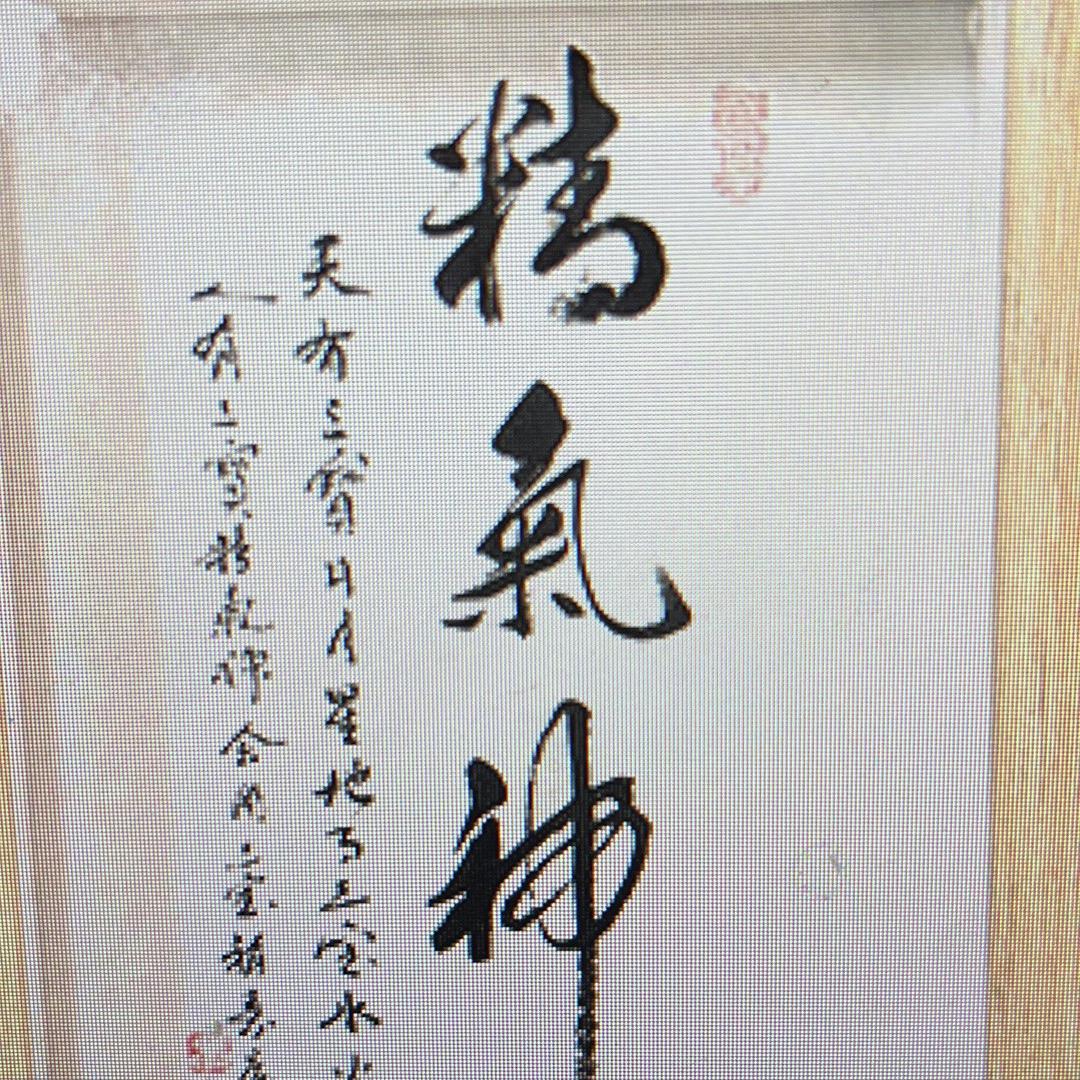 精氣神
天有三寶日月星地有三寶水火
人有三寶精氣神會用三寶